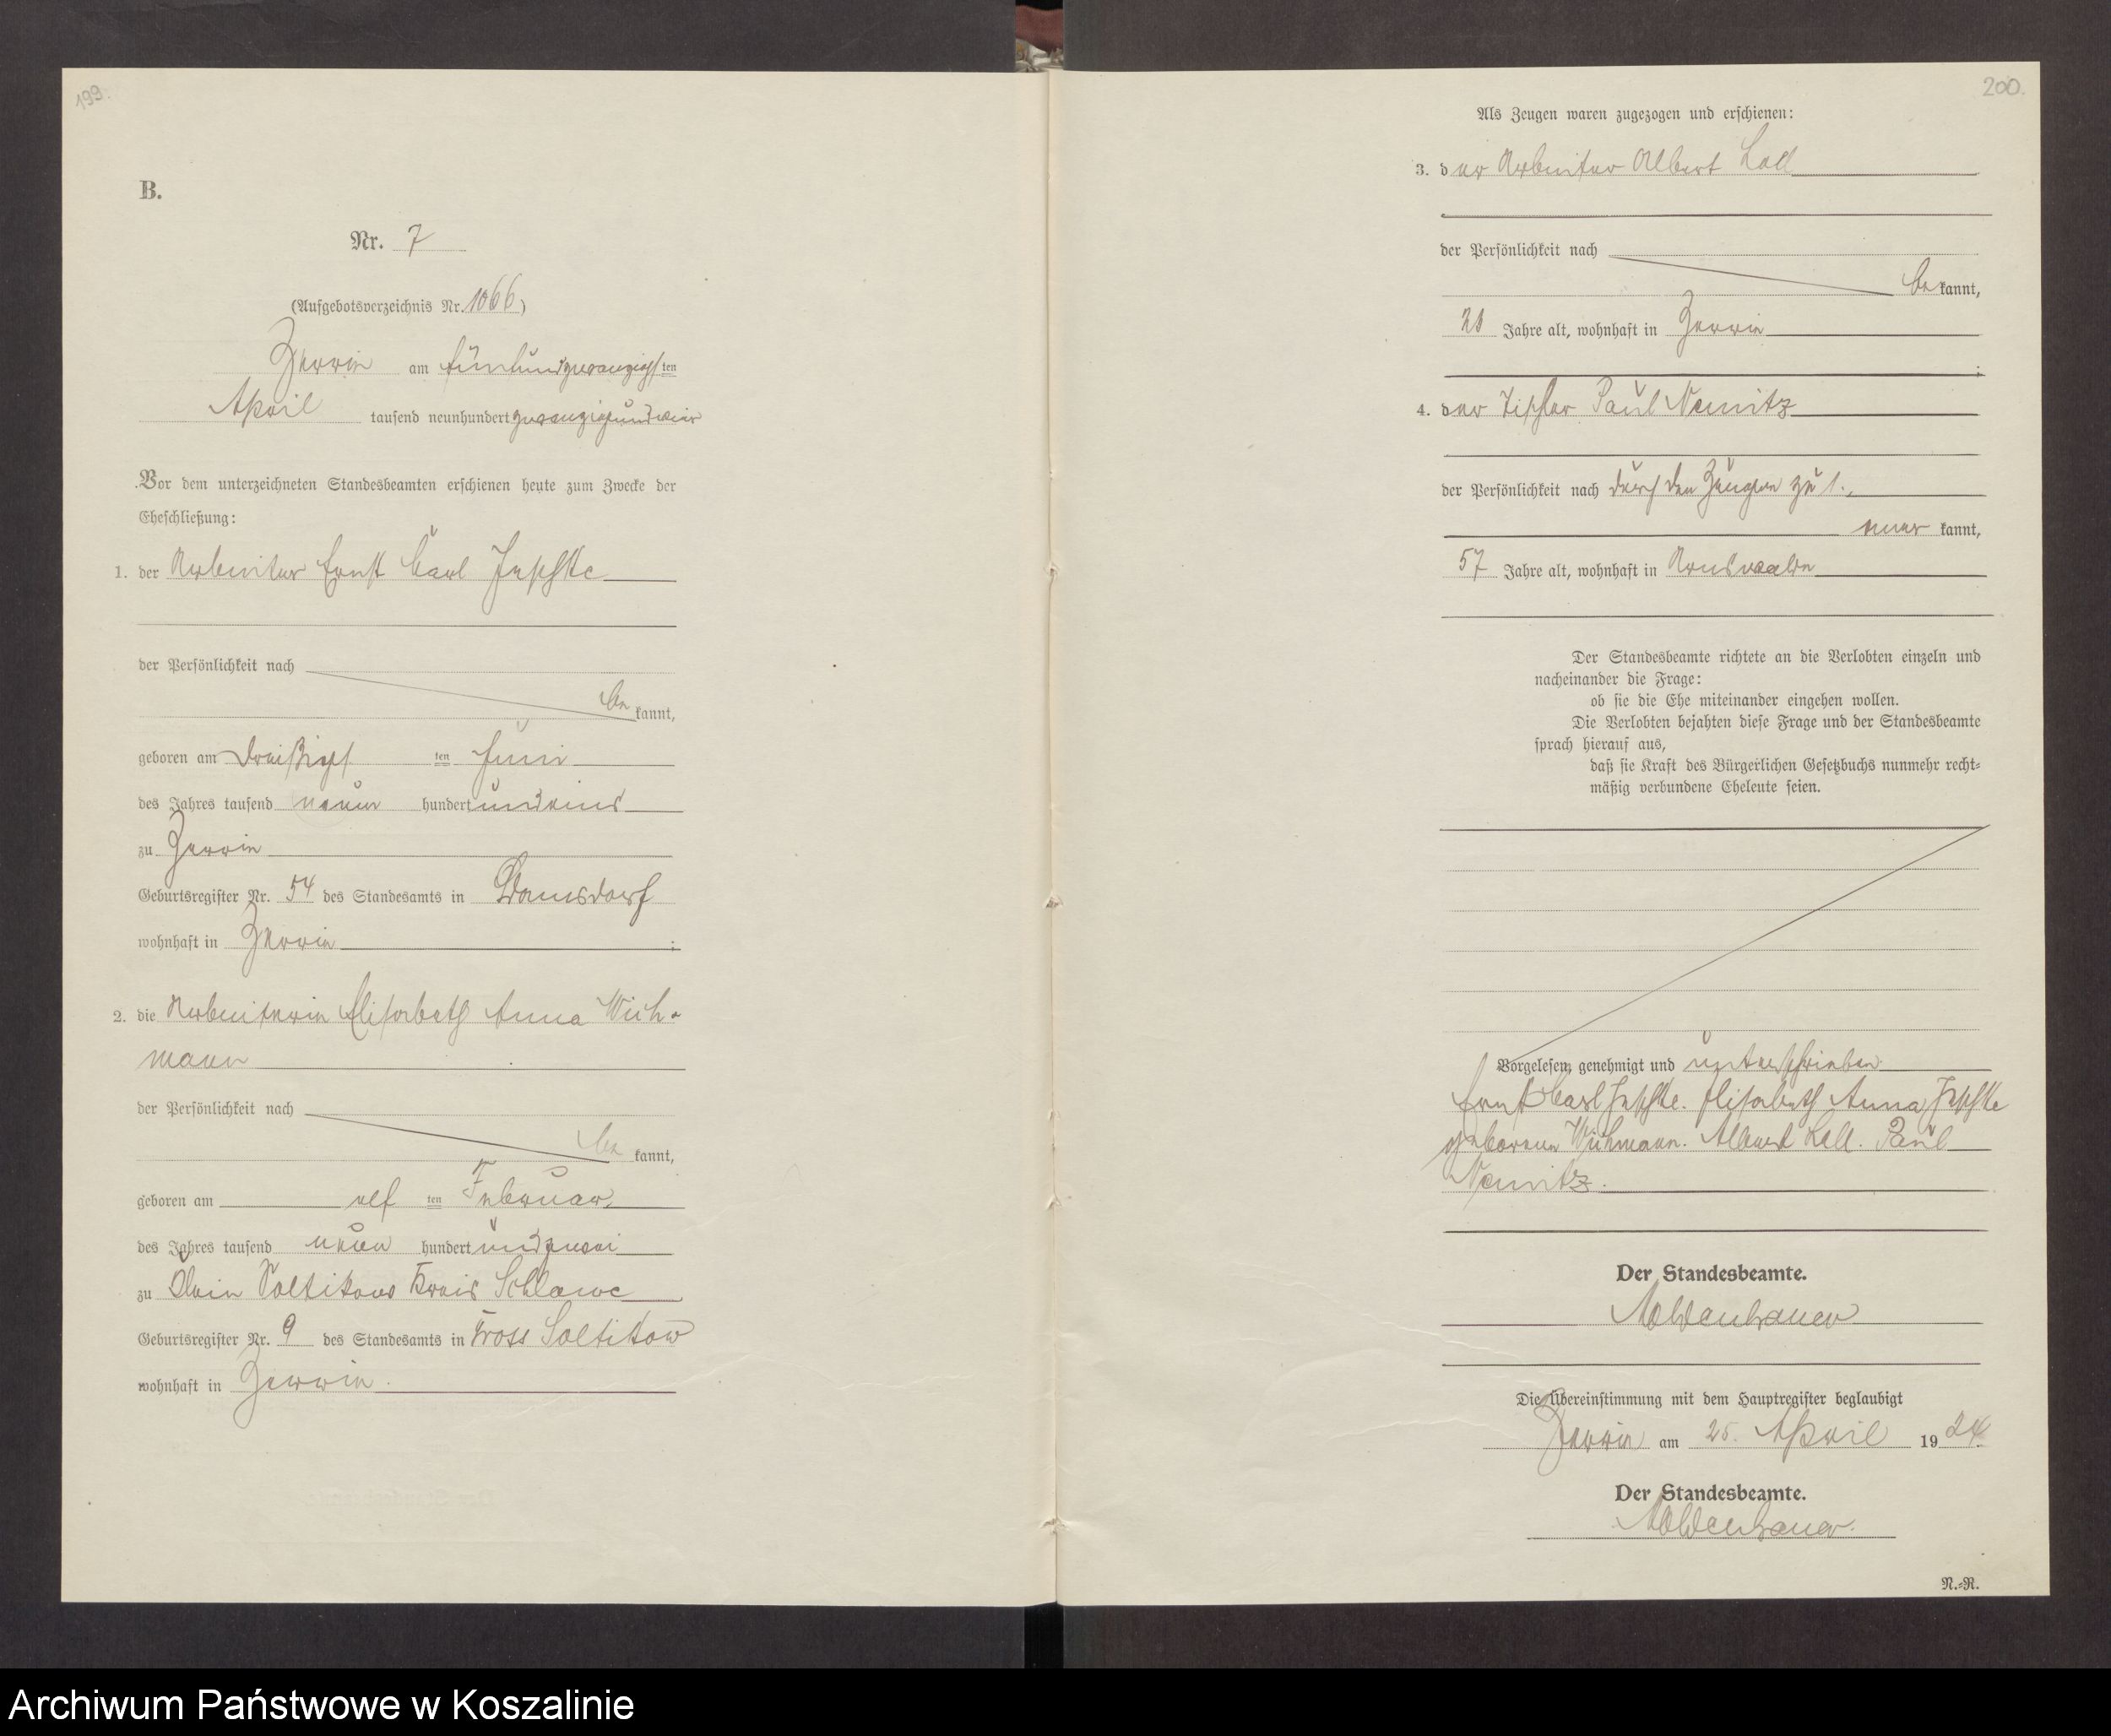 199.
B.
Nr. 7
(Aufgebotsverzeichnis Nr. 1066)
Zerrin am fünfundzwanzigsten
April tausend neunhundert zwanzigundvier
Vor dem unterzeichneten Standesbeamten erschienen heute zum Zwecke der
Eheschließung:
1. der Arbeiter Ernst Carl Jeschke
der Persönlichkeit nach
be kannt,
geboren am dreißigsten Juni
des Jahres tausend neun hundert undeins
zu Zerrin
Geburtsregister Nr. 54 des Standesamts in Damsdorf
wohnhaft in Zerrin;
2. die Arbeiterin Elisabeth Anna Wich-
mann
der Persönlichkeit nach
be kannt,
geboren am elf ten Februar
des Jahres tausend neun hundert undzwei
zu Klein Soltikow Kreis Schlawe
Geburtsregister Nr. 9 des Standesamts in Gross Soltikow
wohnhaft in Zerrin.
200.
Als Zeugen waren zugezogen und erschienen:
3. der Arbeiter Albert
der Persönlichkeit nach
be kannt,
Jahre alt, wohnhaft in Zerrin
;
4. der Tischler Paul Nemitz
der Persönlichkeit nach durch den Zeugen zu 1.,
aner kannt,
57 Jahre alt, wohnhaft in
Der Standesbeamte richtete an die Verlobten einzeln und
nacheinander die Frage:
ob sie die Ehe miteinander eingehen wollen.
Die Verlobten bejahten diese Frage und der Standesbeamte
sprach hierauf aus,
daß sie Kraft des Bürgerlichen Gesetzbuchs nunmehr recht-
mäßig verbundene Eheleute seien.
Vorgelesen, genehmigt und unterschrieben
Ernst Carl Jeschke. Elisabeth Anna Jeschke
geborene Wichmann. Albert Paul
Nemitz.
Der Standesbeamte.
Moldenhauer
Die Übereinstimmung mit dem Hauptregister beglaubigt
Zerrin am 25. April 1924.
Der Standesbeamte.
Moldenhauer.
N.-R.
Archiwum Państwowe w Koszalinie